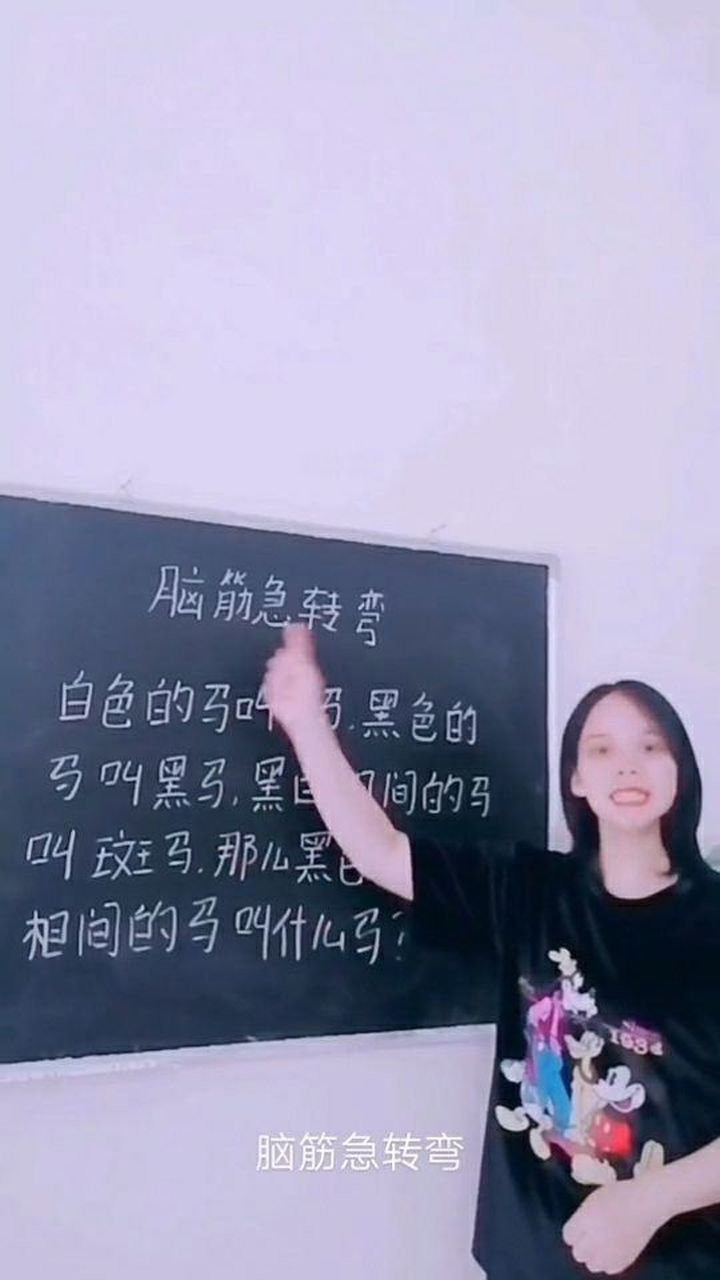 脑筋急转弯
白色的马叫 马.黑色的
马叫黑马,黑白 间的马
叫斑马.那么黑
相间的马叫什么马?
1934
脑筋急转弯